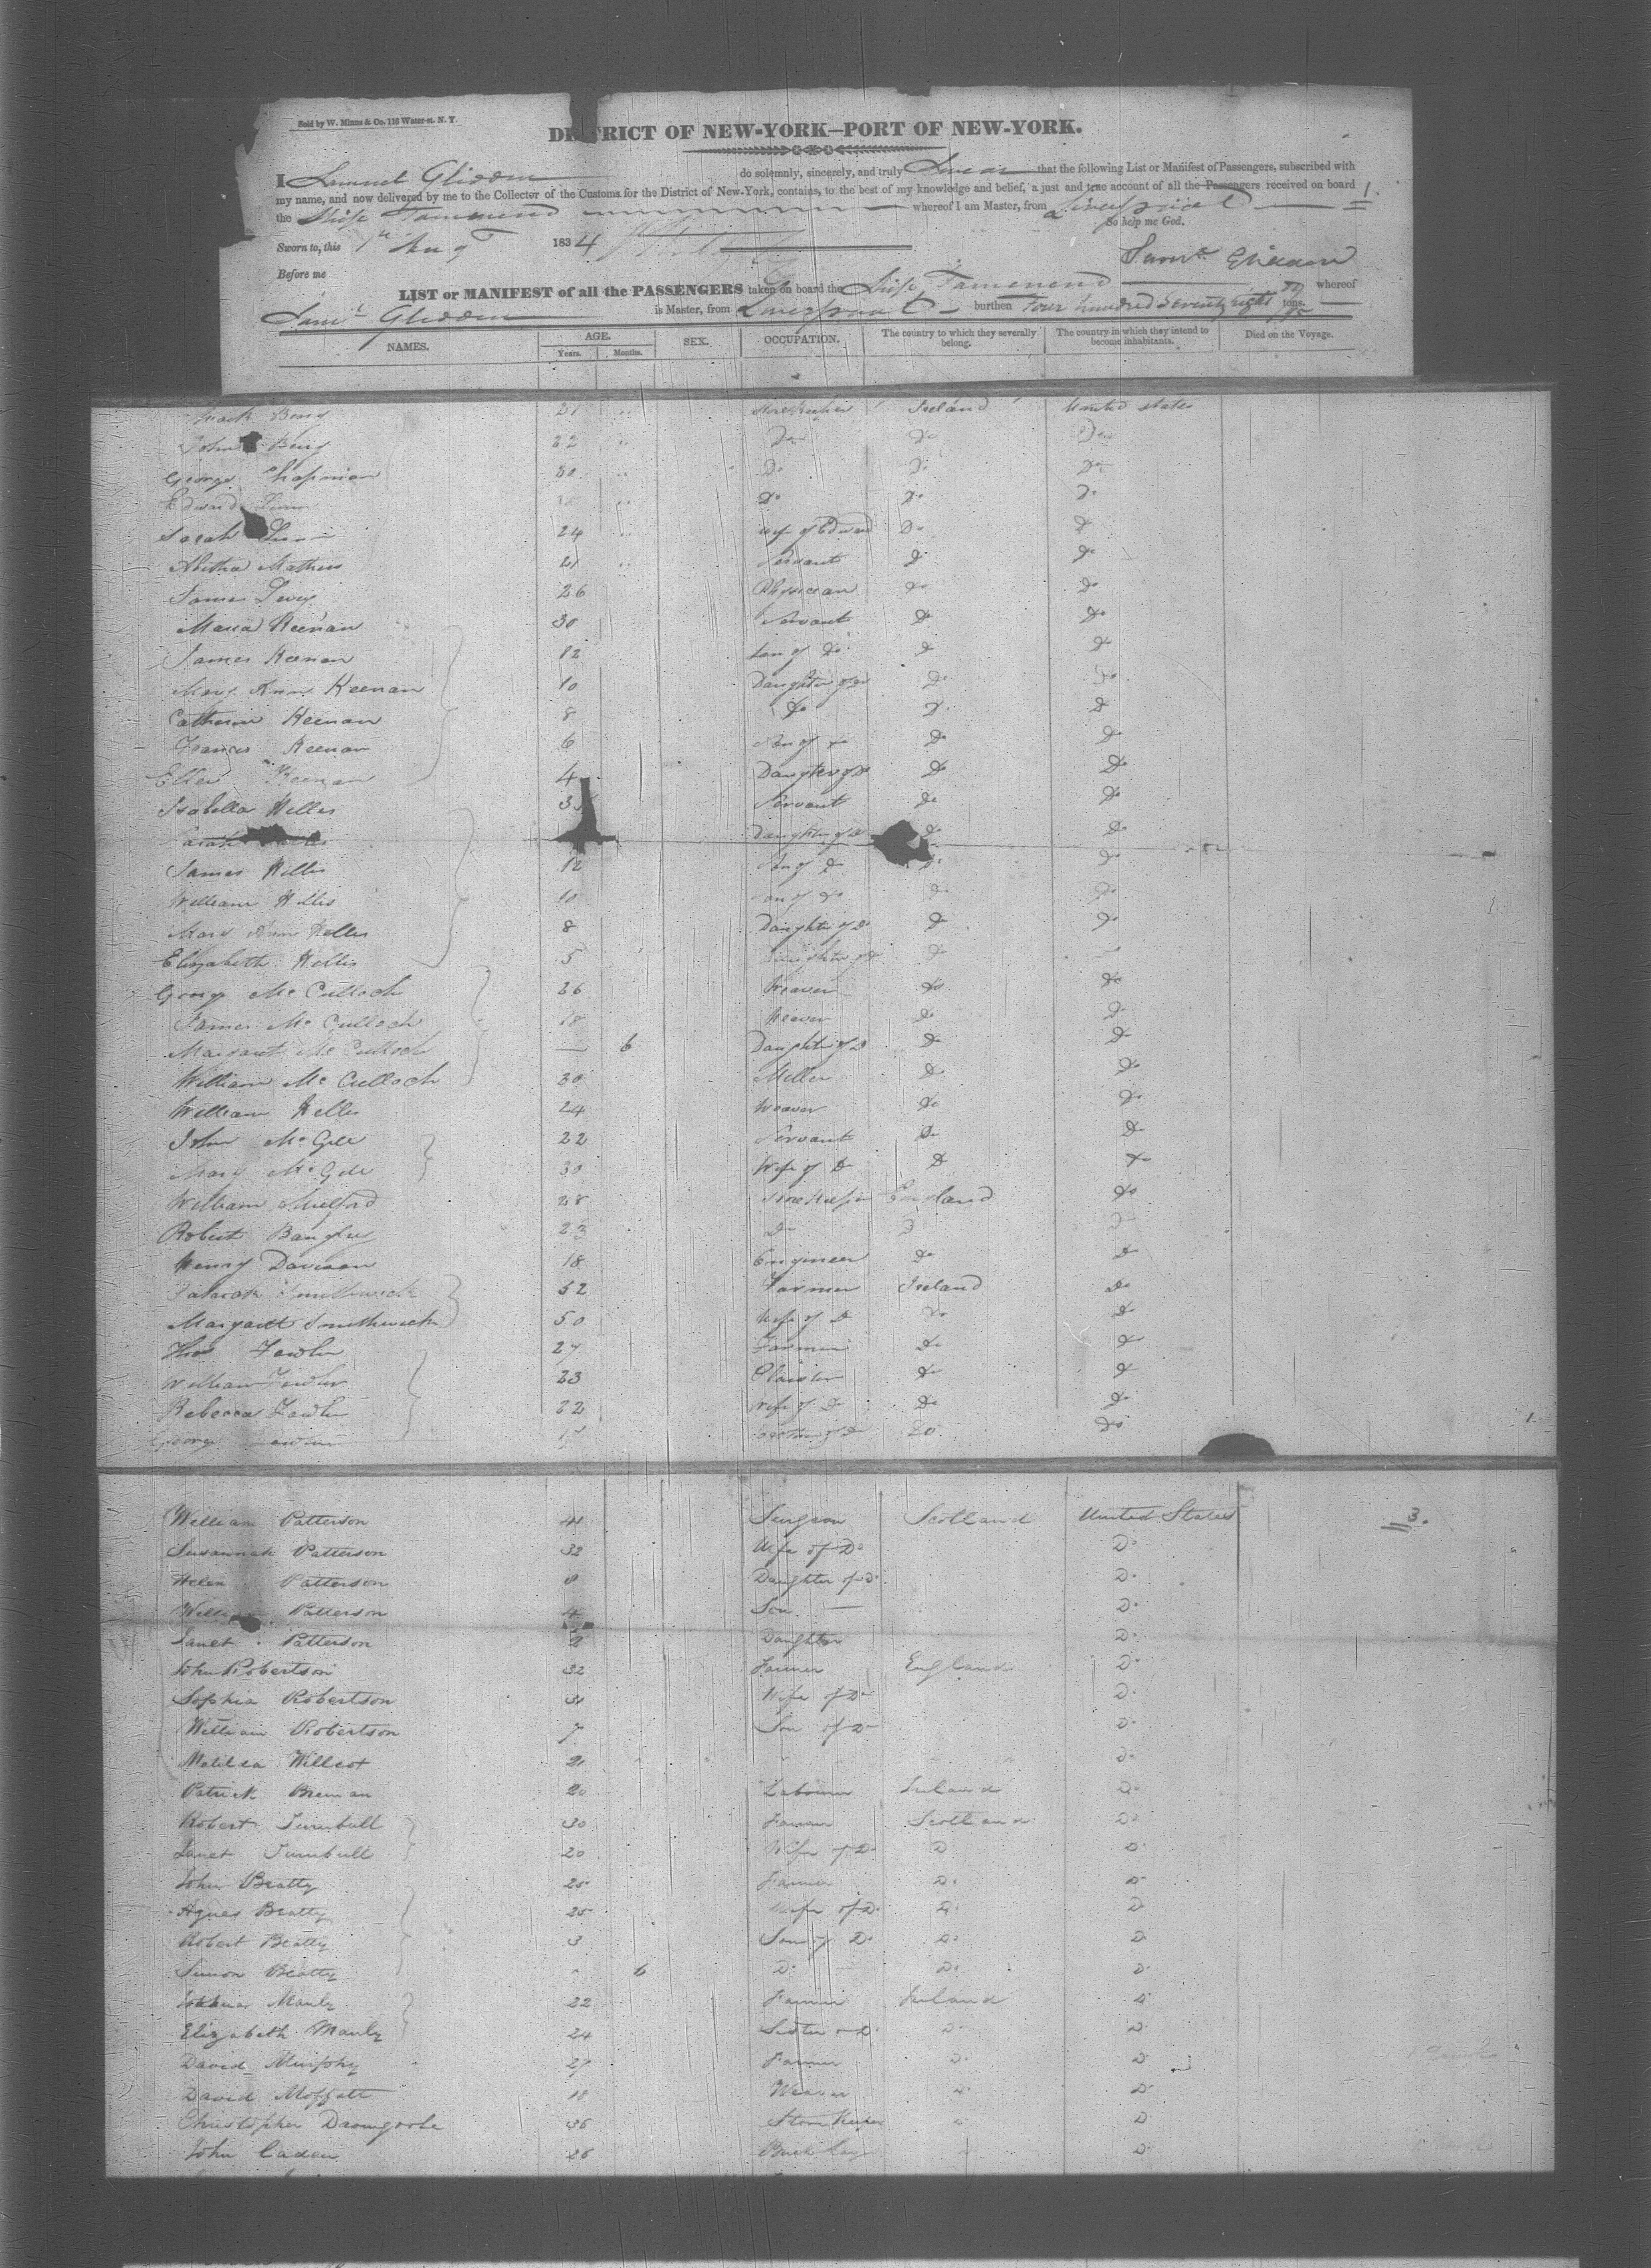 Sold by W. Minns & Co. 116 Water-st. N. Y.
DISTRICT OF NEW-YORK—PORT OF NEW-YORK.
I Samuel Glidden do solemnly, sincerely, and truly Swear that the following List or Manifest of Passengers, subscribed with
my name, and now delivered by me to the Collector of the Customs for the District of New-York, contains, to the best of my knowledge and belief, a just and true account of all the Passengers received on board
the Ship Tamenend whereof I am Master, from Liverpool 1
So help me God.
Sworn to, this 1st Aug 1834
Saml Glidden
Before me
LIST or MANIFEST of all the PASSENGERS taken on board the Ship Tamenend whereof
Saml Glidden is Master, from Liverpool burthen Four hundred Seventy eight tons.
NAMES. AGE. Years. Months. SEX. OCCUPATION. The country to which they severally belong. The country in which they intend to become inhabitants. Died on the Voyage.
Berry 21 Storekeeper Ireland United States
John Berry 22 Do Do Do
George Chapman 30 Do Do Do
Edward Do Do Do
Sarah 24 Wife of Edward Do Do
Mathews 21 Servant Do Do
James 26 Physician Do Do
Maria Keenan 30 Servant Do Do
James Keenan 12 Son of Do Do Do
Mary Ann Keenan 10 Daughter of Do Do Do
Catherine Keenan 8 Do Do Do
Francis Keenan 6 Son of Do Do Do
Ellen Keenan 4 Daughter of Do Do Do
Isabella Hillis 35 Servant Do Do
Sarah Daughter of Do Do Do
James Hillis 12 Son of Do Do Do
William Hillis 10 Son of Do Do Do
Mary Ann Hillis 8 Daughter of Do Do Do
Elizabeth Hillis 5 Daughter of Do Do
George McCulloch 26 Weaver Do Do
James McCulloch 18 Weaver Do Do
Margaret McCulloch — 6 Daughter of Do Do Do
William McCulloch 30 Miller Do Do
William Hillis 24 Weaver Do Do
John McGill 22 Servant Do Do
Mary McGill 30 Wife of Do Do Do
William 28 Storekeeper England Do
Robert 23 Do Do Do
Henry Davison 18 Engineer Do Do
Smithwick 52 Farmer Ireland Do
Margaret Smithwick 50 Wife of Do Do Do
Thos Fowler 27 Farmer Do Do
William Fowler 23 Do Do
Rebecca Fowler 22 Wife of Do Do Do
George 17 Brother of Do Do Do
William Patterson 41 Surgeon Scotland United States 3.
Susannah Patterson 32 Wife of Do Do
Helen Patterson 8 Daughter of Do Do
William Patterson 4 Son — Do
Janet Patterson 2 Daughter Do
John Robertson 32 Farmer England Do
Sophia Robertson 31 Wife of Do Do
William Robertson 7 Son of Do Do
Matilda Willcot 21 " " " Do
Patrick Brennan 20 Labourer Ireland Do
Robert Turnbull 30 Farmer Scotland Do
Janet Turnbull 20 Wife of Do Do Do
John Beatty 25 Farmer Do Do
Agnes Beatty 25 Wife of Do Do Do
Robert Beatty 3 Son of Do Do Do
Simon Beatty 6 Do Do Do
Joshua Manly 22 Farmer Ireland Do
Elizabeth Manly 24 Sister of Do Do Do
David Murphy 27 Farmer Do Do
David Moffatt 18 Weaver Do Do
Christopher Dromgoole 36 Store Keeper Do
John Caden 26 Brick Lay Do